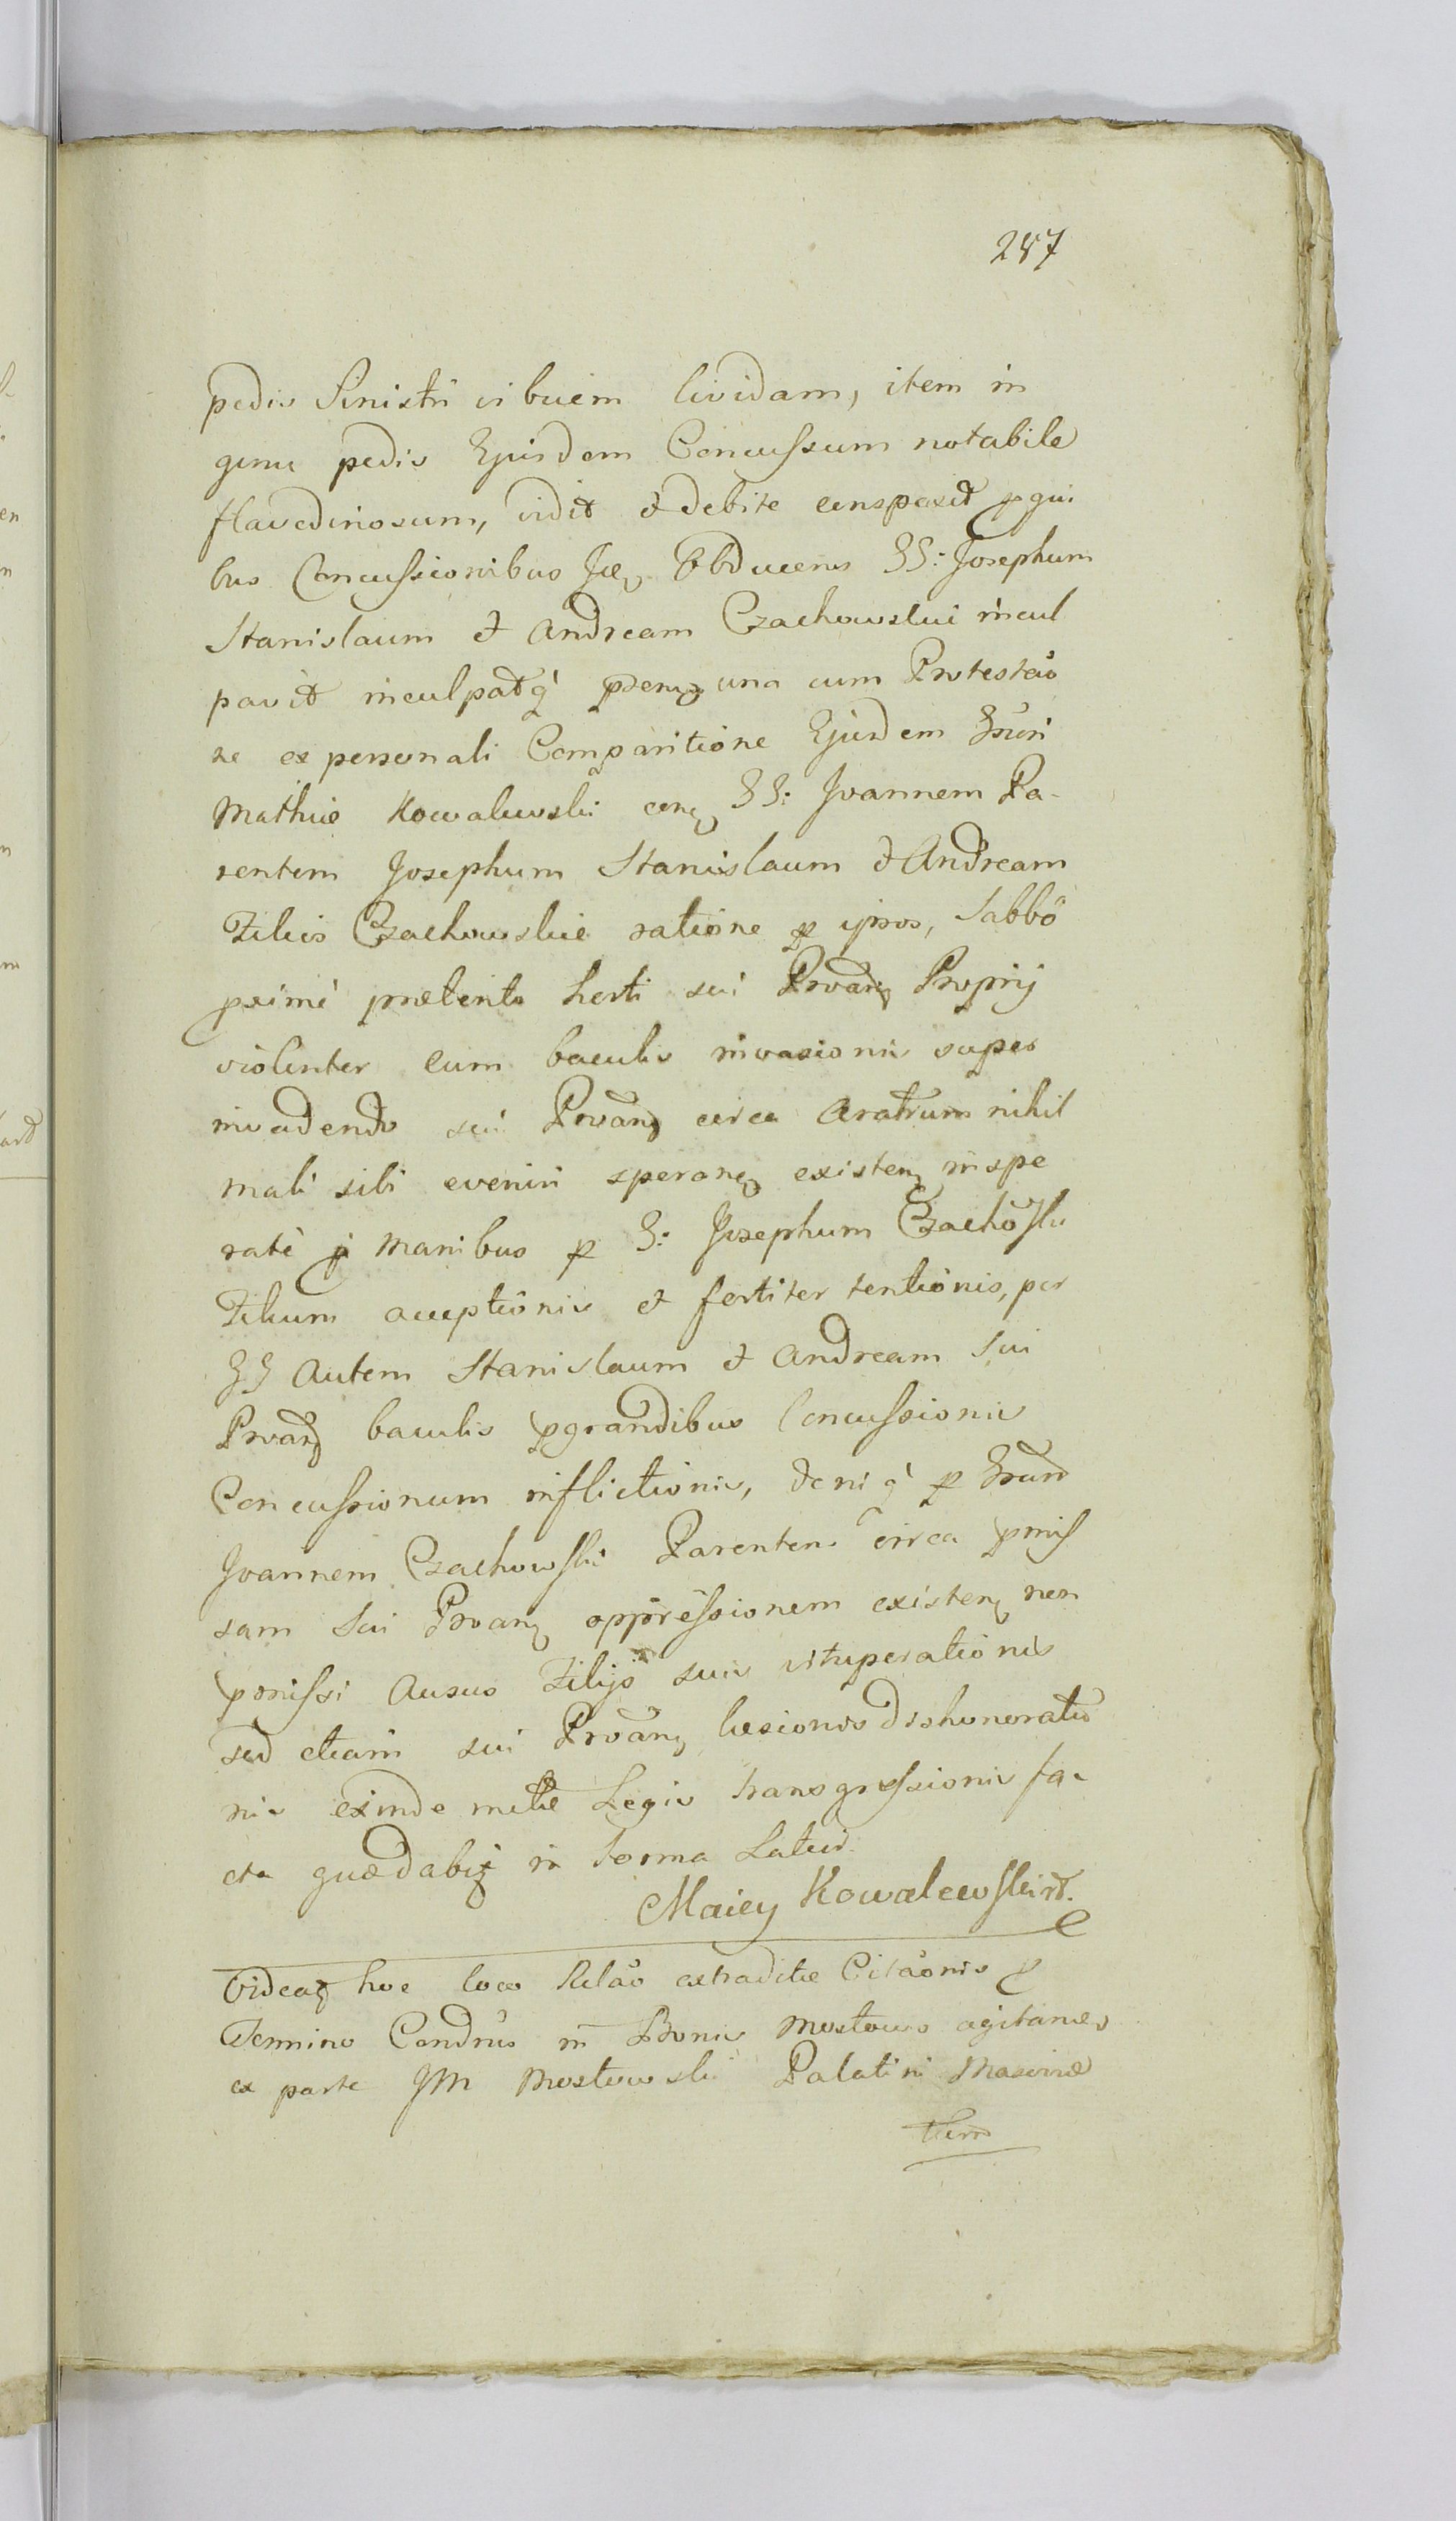 287
pedis Sinistri vibicem lividam, item in
genu pedis Ejusdem Concussum notabile
flavedinosum, vidit et debite conspexit p qui
bus Concussionibus Obducens GG: Josephum
Stanislaum et Andream Czachowskie incul
pavit inculpatq una cum Protestaõ
ne ex personali Comparitione Ejusdem
Mathiæ Kowalewski GG: Joannem Pa-
rentem Josephum Stanislaum et Andream
Filios Czachowskie ratione p ipsos, Sabbõ
pximè præterito sui Proprij
violenter cum baculis invasionis super
invadendo sui circa Aratrum nihil
mali sibi eveniri speran existen inspe
ratè p Manibus p G: Josephum Czachõski
Filium acceptionis et fortiter tentionis, per
GG Autem Stanislaum et Andream Sui
baculis pgrandibus Concussionis
Concussionum inflictionis, deniq p
Joannem Czachowski Parentem circa pmis
sam Sui oppressionem existen non
pmissi Ausus Filijs suis vituperationis
sed etiam sui læsionis dishonoratio
nis exinde Legis transgressionis fa-
cta in forma Latiori
Maciey Kowalewski
hoc loco Relaõ extraditæ Citaõnis p
Termino Condnis in Bonis Mostowo
ex parte JM Mostowski Palatini Masoviæ